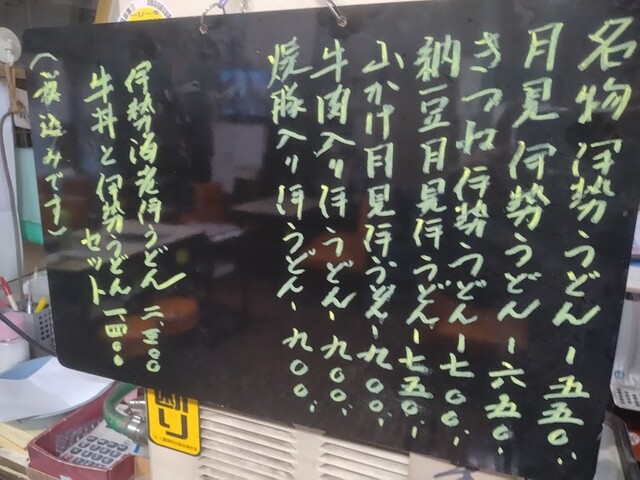 名物 伊勢うどん ー 五五〇
月見 伊勢うどん ー 六五〇
きつね伊勢うどん ー 七〇〇
納豆月見伊うどん ー 七五〇
山かけ月見伊うどん ー 九〇〇
牛肉入り伊うどん ー 九〇〇
焼豚入り伊うどん ー 九〇〇
伊勢海老伊うどん 二、三〇〇
牛丼と伊勢うどん
セット 一、四〇〇
(税込みです)
断り